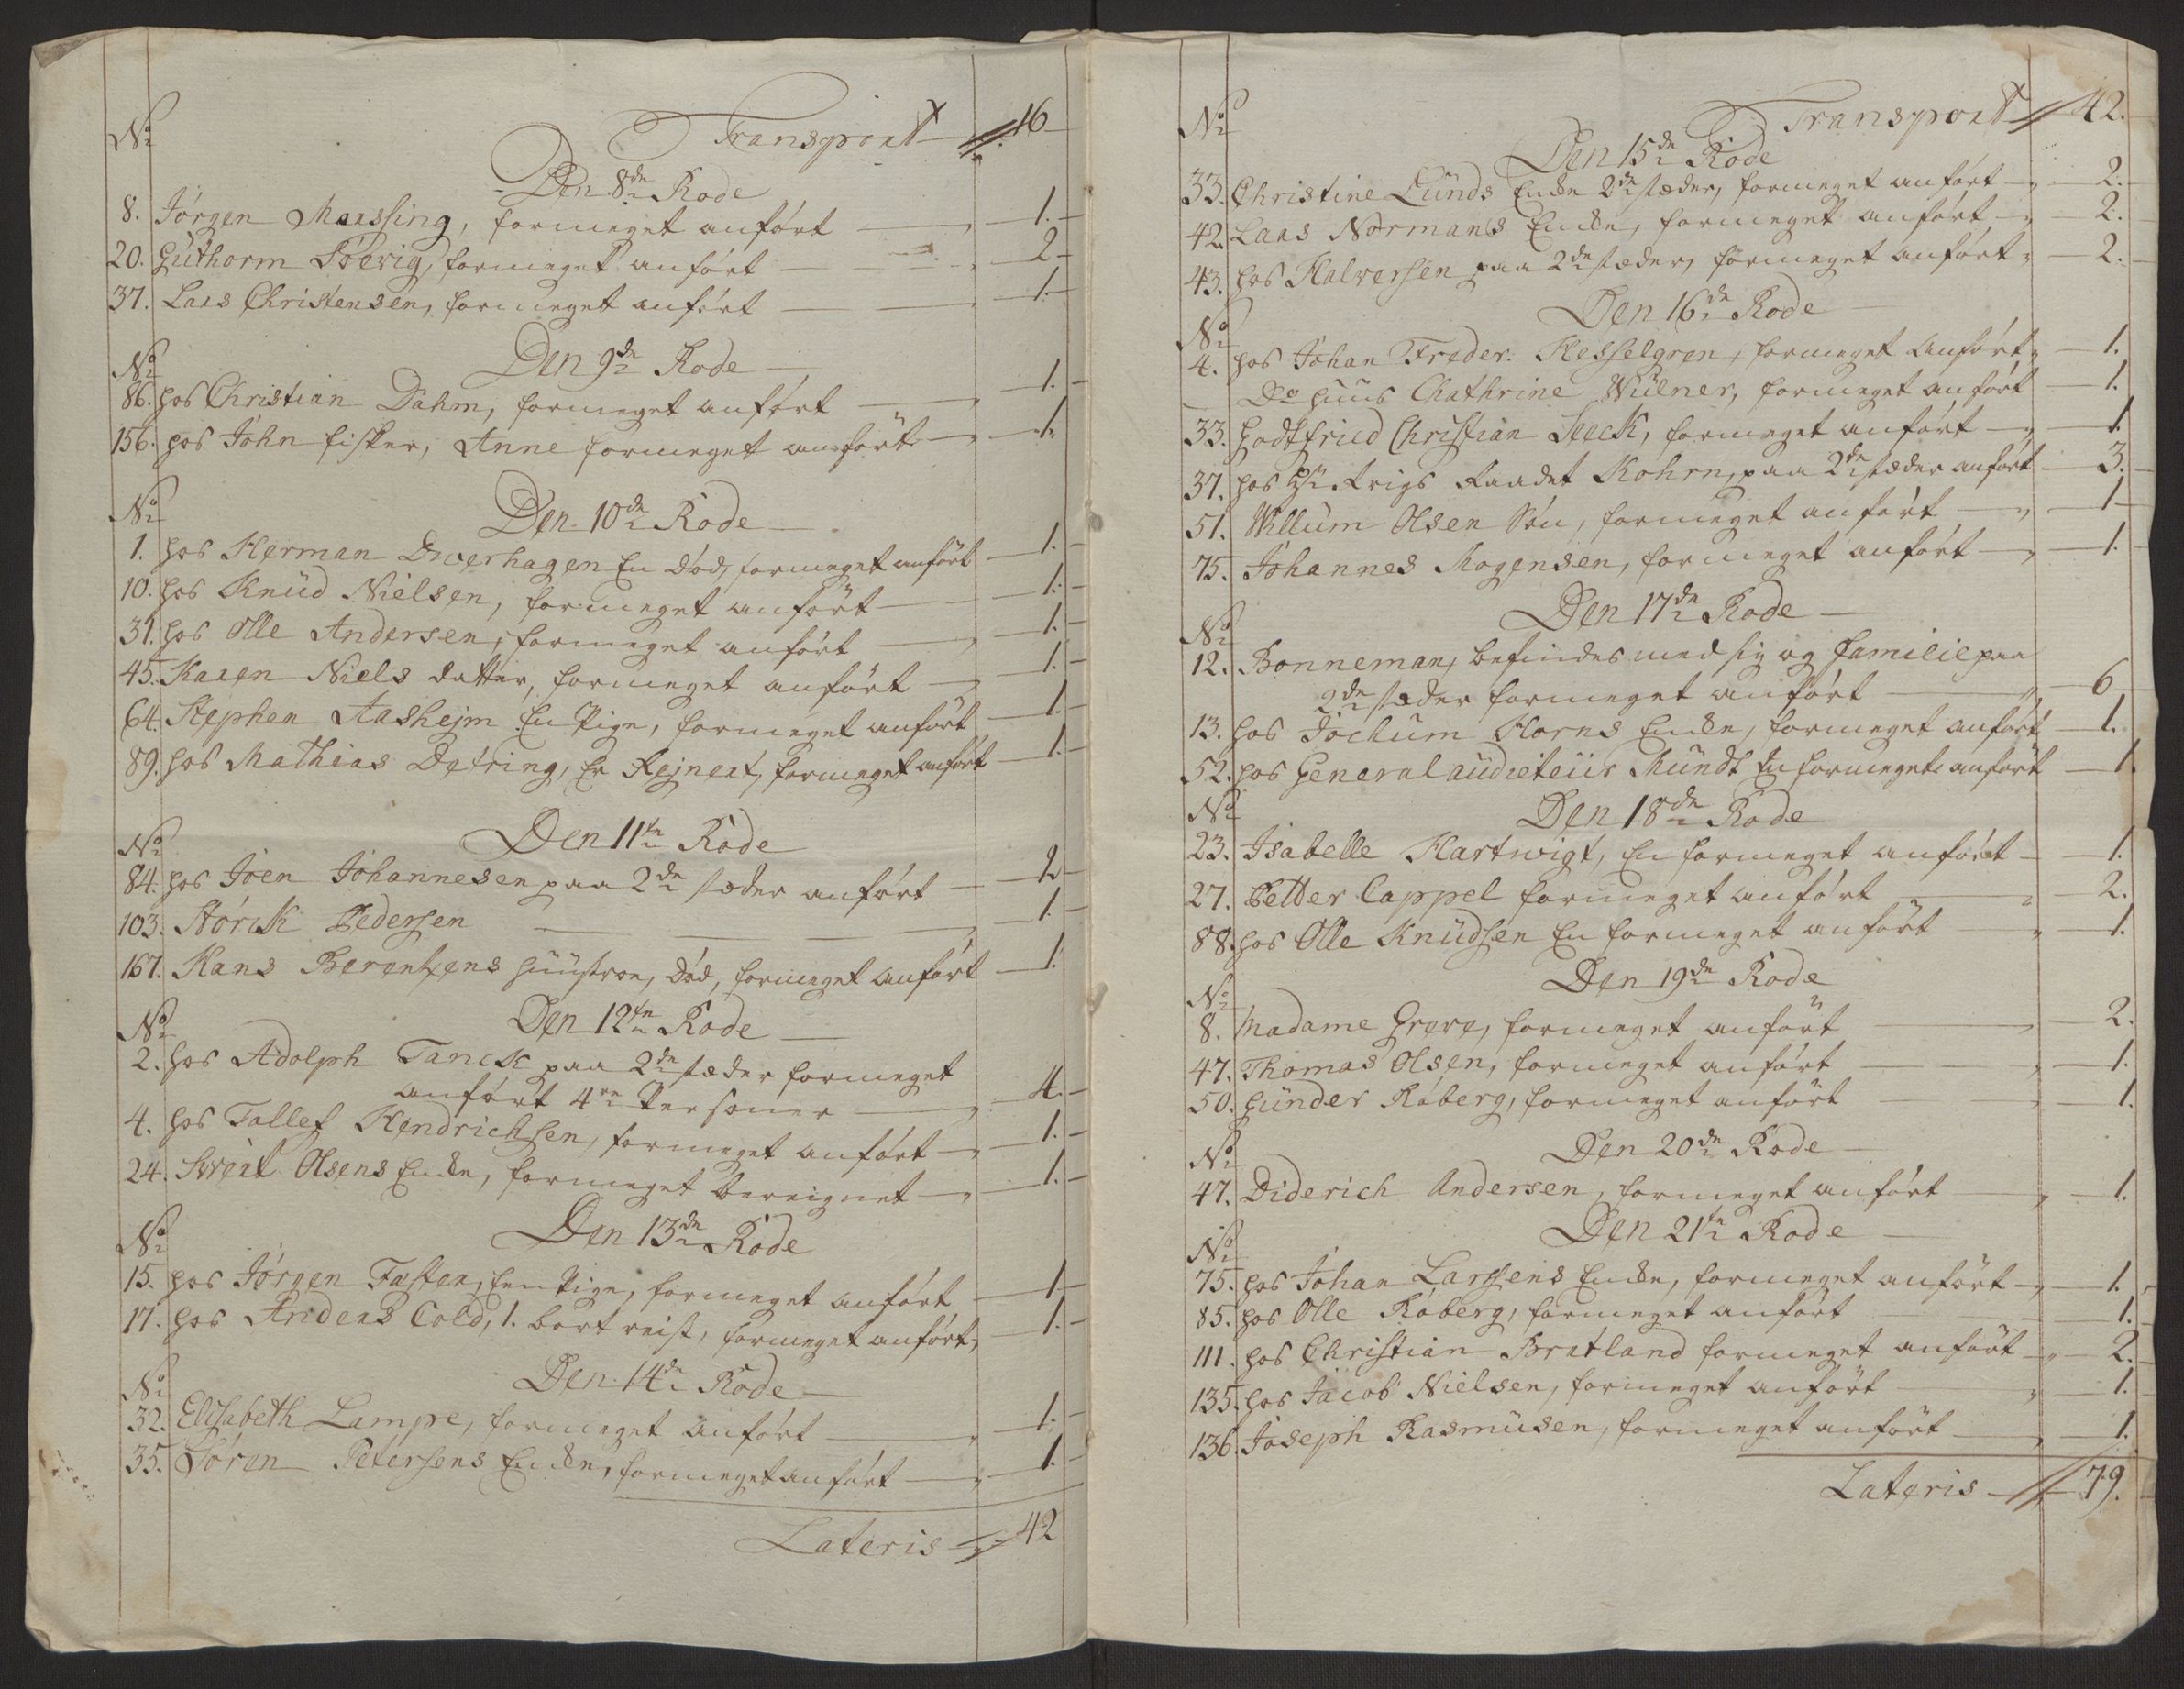 No Transport 16
Den 8de Rode
8. Jörgen Maassing, formeget anfört 1.
20. Guthorm Söevig, formeget anfört 2
37. Lars Christensen, formeget anfört 1.
No Den 9de Rode
86. hos Christian Dahm, formeget anfört 1.
156. hos John fisker, Anne formeget anfört 1.
No Den 10de Rode
1. hos Herman Dwerhagen En död, formeget anfört 1.
10. hos Knud Nielsen, formeget anfört 1.
31. hos Olle Andersen, formeget anfört 1.
45. Karen Niels datter, formeget anfört 1.
64. Stephen Aashejm En Pige, formeget anfört 1.
89. hos Mathias Detring, Er Rejnert, formeget anfört 1.
No Den 11te Rode
84. hos Joen Johannesen paa 2de stæder anfört 2
103. Störck Pedersen 1.
167. Hans Berentzens huustroe, död, formeget anfört 1.
No Den 12te Rode
2. hos Adolph Tanck paa 2de stæder formeget
anfört 4re Personer 4.
4. hos Tallef Hendrichsen, formeget anfört 1.
24. Svent Olsens Enke, formeget bereignet 1.
No Den 13de Rode
15. hos Jörgen Fasten, Een Pige, formeget anfört 1
17. hos Anders Cold, 1. bort reist, formeget anfört 1.
No Den 14de Rode
32. Elisabeth Lampe, formeget anfört 1.
35. Sören Petersens Enke, formeget anfört 1.
Lateris 42
No Transport 42.
Den 15de Rode
33. Christine Lunds Enke 2de stæder, formeget anfört 2.
42. Lars Normans Enke, formeget anfört 2.
43. hos Halversen paa 2de stæder, formeget anfört 2.
No Den 16de Rode
4. hos Johan Freder: Hesselgren, formeget anfört 1.
Do huus Chathrine Wulner, formeget anfört 1.
33. Godtfried Christian Seeck, formeget anfört 1.
37. hos Hr. Krigs Raadet Kohrn, paa 2de stæder anfört 3.
51. Willum Olsen Sön, formeget anfört 1
75. Johannes Mogensen, formeget anfört 1.
No Den 17de Rode
12. Bonneman, befindes med sig og familie paa
2de stæder formeget anfört 6
13. hos Jochum Horns Enke, formeget anfört 1.
52. hos General audieteur Mundt En formeget anfört 1.
No Den 18de Rode
23. Isabelle Hartwigt, En formeget anfört 1.
27. Petter Cappel formeget anfört 2.
88. hos Olle Knudsen En formeget anfört 1.
No Den 19de Rode
8. Madame Greve, formeget anfört 2.
47. Thomas Olsen, formeget anfört 1.
50. Gunder Röberg, formeget anfört 1.
No Den 20de Rode
47. Diderich Andersen, formeget anfört 1.
No Den 21te Rode
75. hos Johan Larsens Enke, formeget anfört 1.
85. hos Olle Röberg, formeget anfört 1.
111. hos Christian Bratland formeget anfört 2.
135. hos Jacob Nielsen, formeget anfört 1.
136. Joseph Rasmusen, formeget anfört 1.
Lateris 79.